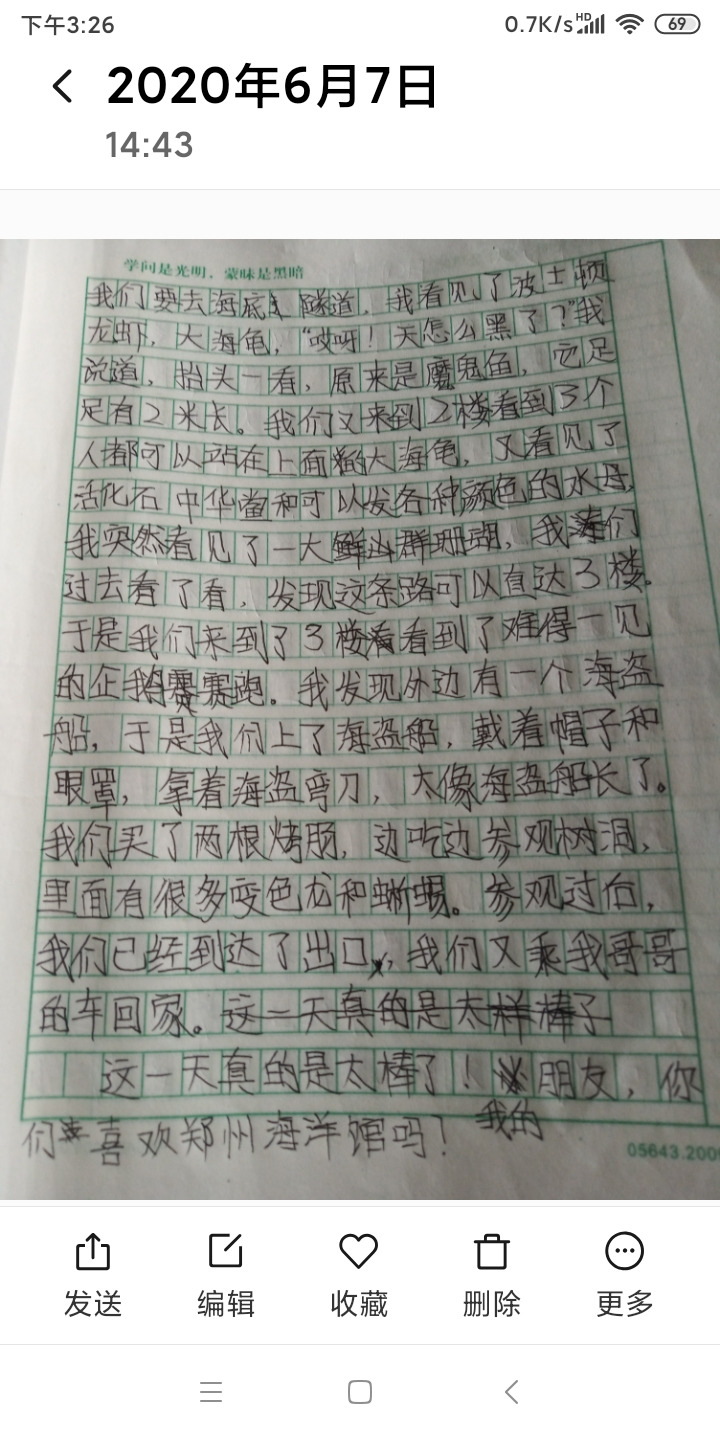 下午3:26
0.7K/s HD 69
2020年6月7日
14:43
学问是光明，蒙昧是黑暗
我们要去海底隧道，我看见了波士顿
龙虾，大海龟，“哎呀！天怎么黑了？”我
说道，抬头一看，原来是魔鬼鱼，它足
足有2米长。我们又来到2楼看到3个
人都可以站在上面的大海龟，又看见了
活化石 中华鲎和可以发各种颜色的水母，
我突然看见了一大群珊瑚，我们
过去看了看，发现这条路可以直达3楼。
于是我们来到了3楼看到了难得一见
的企鹅赛跑。我发现外边有一个海盗
船，于是我们上了海盗船，戴着帽子和
眼罩，拿着海盗弯刀，太像海盗船长了。
我们买了两根烤肠，边吃边参观树洞，
里面有很多变色龙和蜥蜴。参观过后，
我们已经到达了出口，我们又乘我哥哥
的车回家。这一天真的是太样棒了
这一天真的是太棒了！我的朋友，你
们喜欢郑州海洋馆吗！
05643.200
发送
编辑
收藏
删除
更多